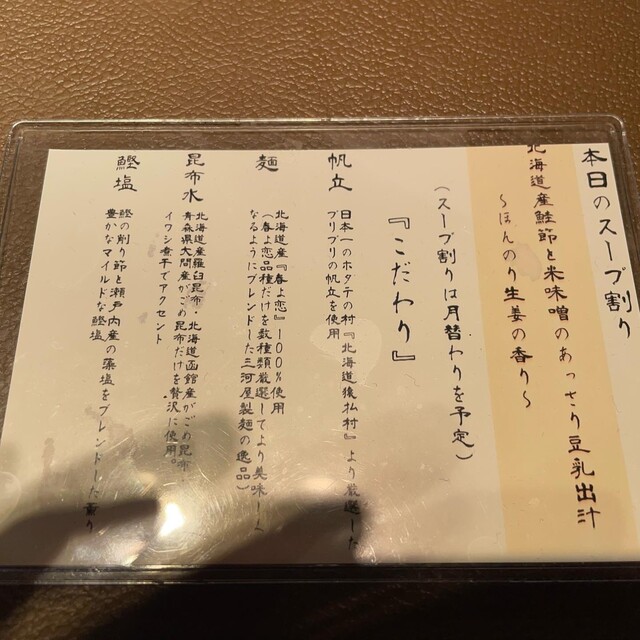 本日のスープ割り
北海道産鮭節と米味噌のあっさり豆乳出汁
～ほんのり生姜の香り～
(スープ割りは月替わりを予定)
『こだわり』
帆立
日本一のホタテの村『北海道猿払村』より厳選した
プリプリの帆立を使用
麺
北海道産『春よ恋』100%使用
(春よ恋品種だけを数種類厳選してより美味しく
なるようにブレンドした三河屋製麺の逸品)
昆布水
北海道産羅臼昆布・北海道函館産がごめ昆布・
青森県大間産がごめ昆布だけを贅沢に使用。
イワシ煮干でアクセント
鰹塩
鰹の削り節と瀬戸内産の藻塩をブレンドした薫り
豊かなマイルドな鰹塩